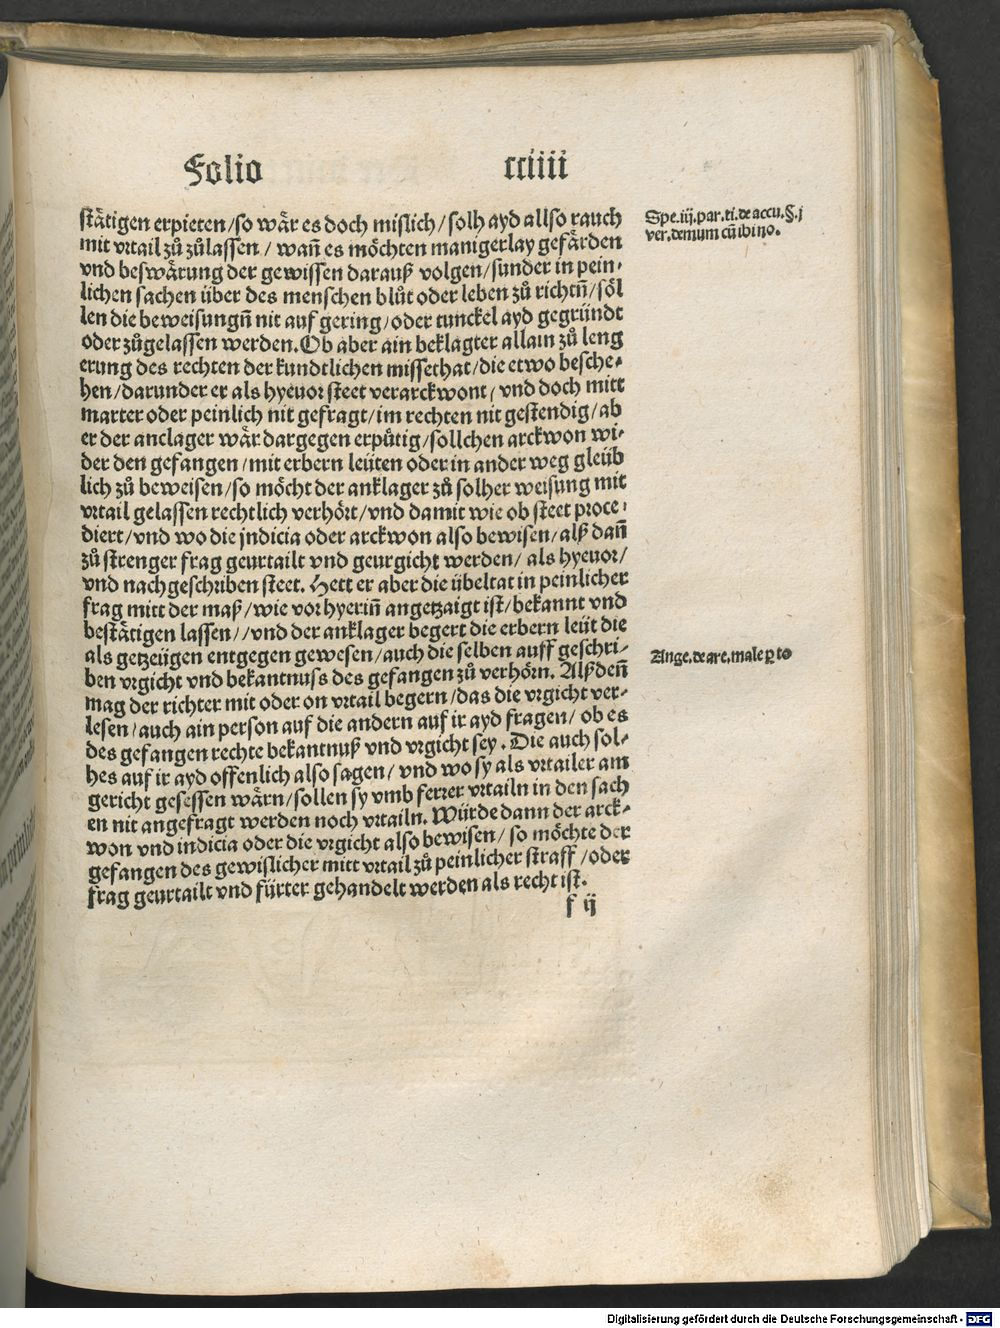 Folio cciiii
stätigen erpieten/so wär es doch mislich/solh ayd allso rauch
mit vrtail zů zůlassen/ wañ es möchten manigerlay gefärden
vnd beswärung der gewissen darauß volgen/sunder in pein-
lichen sachen über des menschen blůt oder leben zů richtñ/söl
len die beweisungñ nit auf gering/oder tunckel ayd gegründt
oder zůgelassen werden. Ob aber ain beklagter allain zů leng
erung des rechten der kundtlichen missethat/die etwo besche-
hen/darunder er als hyeuor steet verarckwont/ vnd doch mitt
marter oder peinlich nit gefragt/im rechten nit gestendig/ab
er der anclager wär dargegen erpütig/sollchen arckwon wi-
der den gefangen/mit erbern leüten oder in ander weg gleüb
lich zů beweisen/so möcht der anklager zů solher weisung mit
vrtail gelassen rechtlich verhört/vnd damit wie ob steet proce-
diert/vnd wo die jndicia oder arckwon also bewisen/alß dañ
zů strenger frag geurtailt vnd geurgicht werden/ als hyeuor/
vnd nachgeschriben steet. Hett er aber die übeltat in peinlicher
frag mitt der maß/wie vor hyeriñ angetzaigt ist/bekannt vnd
bestätigen lassen//vnd der anklager begert die erbern leüt die
als getzeügen entgegen gewesen/auch die selben auff geschri-
ben vrgicht vnd bekantnuss des gefangen zů verhörn. Alßdeñ
mag der richter mit oder on vrtail begern/das die vrgicht ver-
lesen/auch ain person auf die andern auf ir ayd fragen/ ob es
des gefangen rechte bekantnuß vnd vrgicht sey. Die auch sol-
hes auf ir ayd offenlich also sagen/ vnd wo sy als vrtailer am
gericht gesessen wärn/sollen sy vmb ferrer vrtailn in den sach
en nit angefragt werden noch vrtailn. Würde dann der arck-
won vnd indicia oder die vrgicht also bewisen/ so möchte der
gefangen des gewislicher mitt vrtail zů peinlicher straff/oder
frag geurtailt vnd fürter gehandelt werden als recht ist.
f ij
Spe.iij.par.ti.de accu.§.j
ver.demum cũ ibi no.
Ange.de are.male ꝑ to
Digitalisierung gefördert durch die Deutsche Forschungsgemeinschaft - DFG